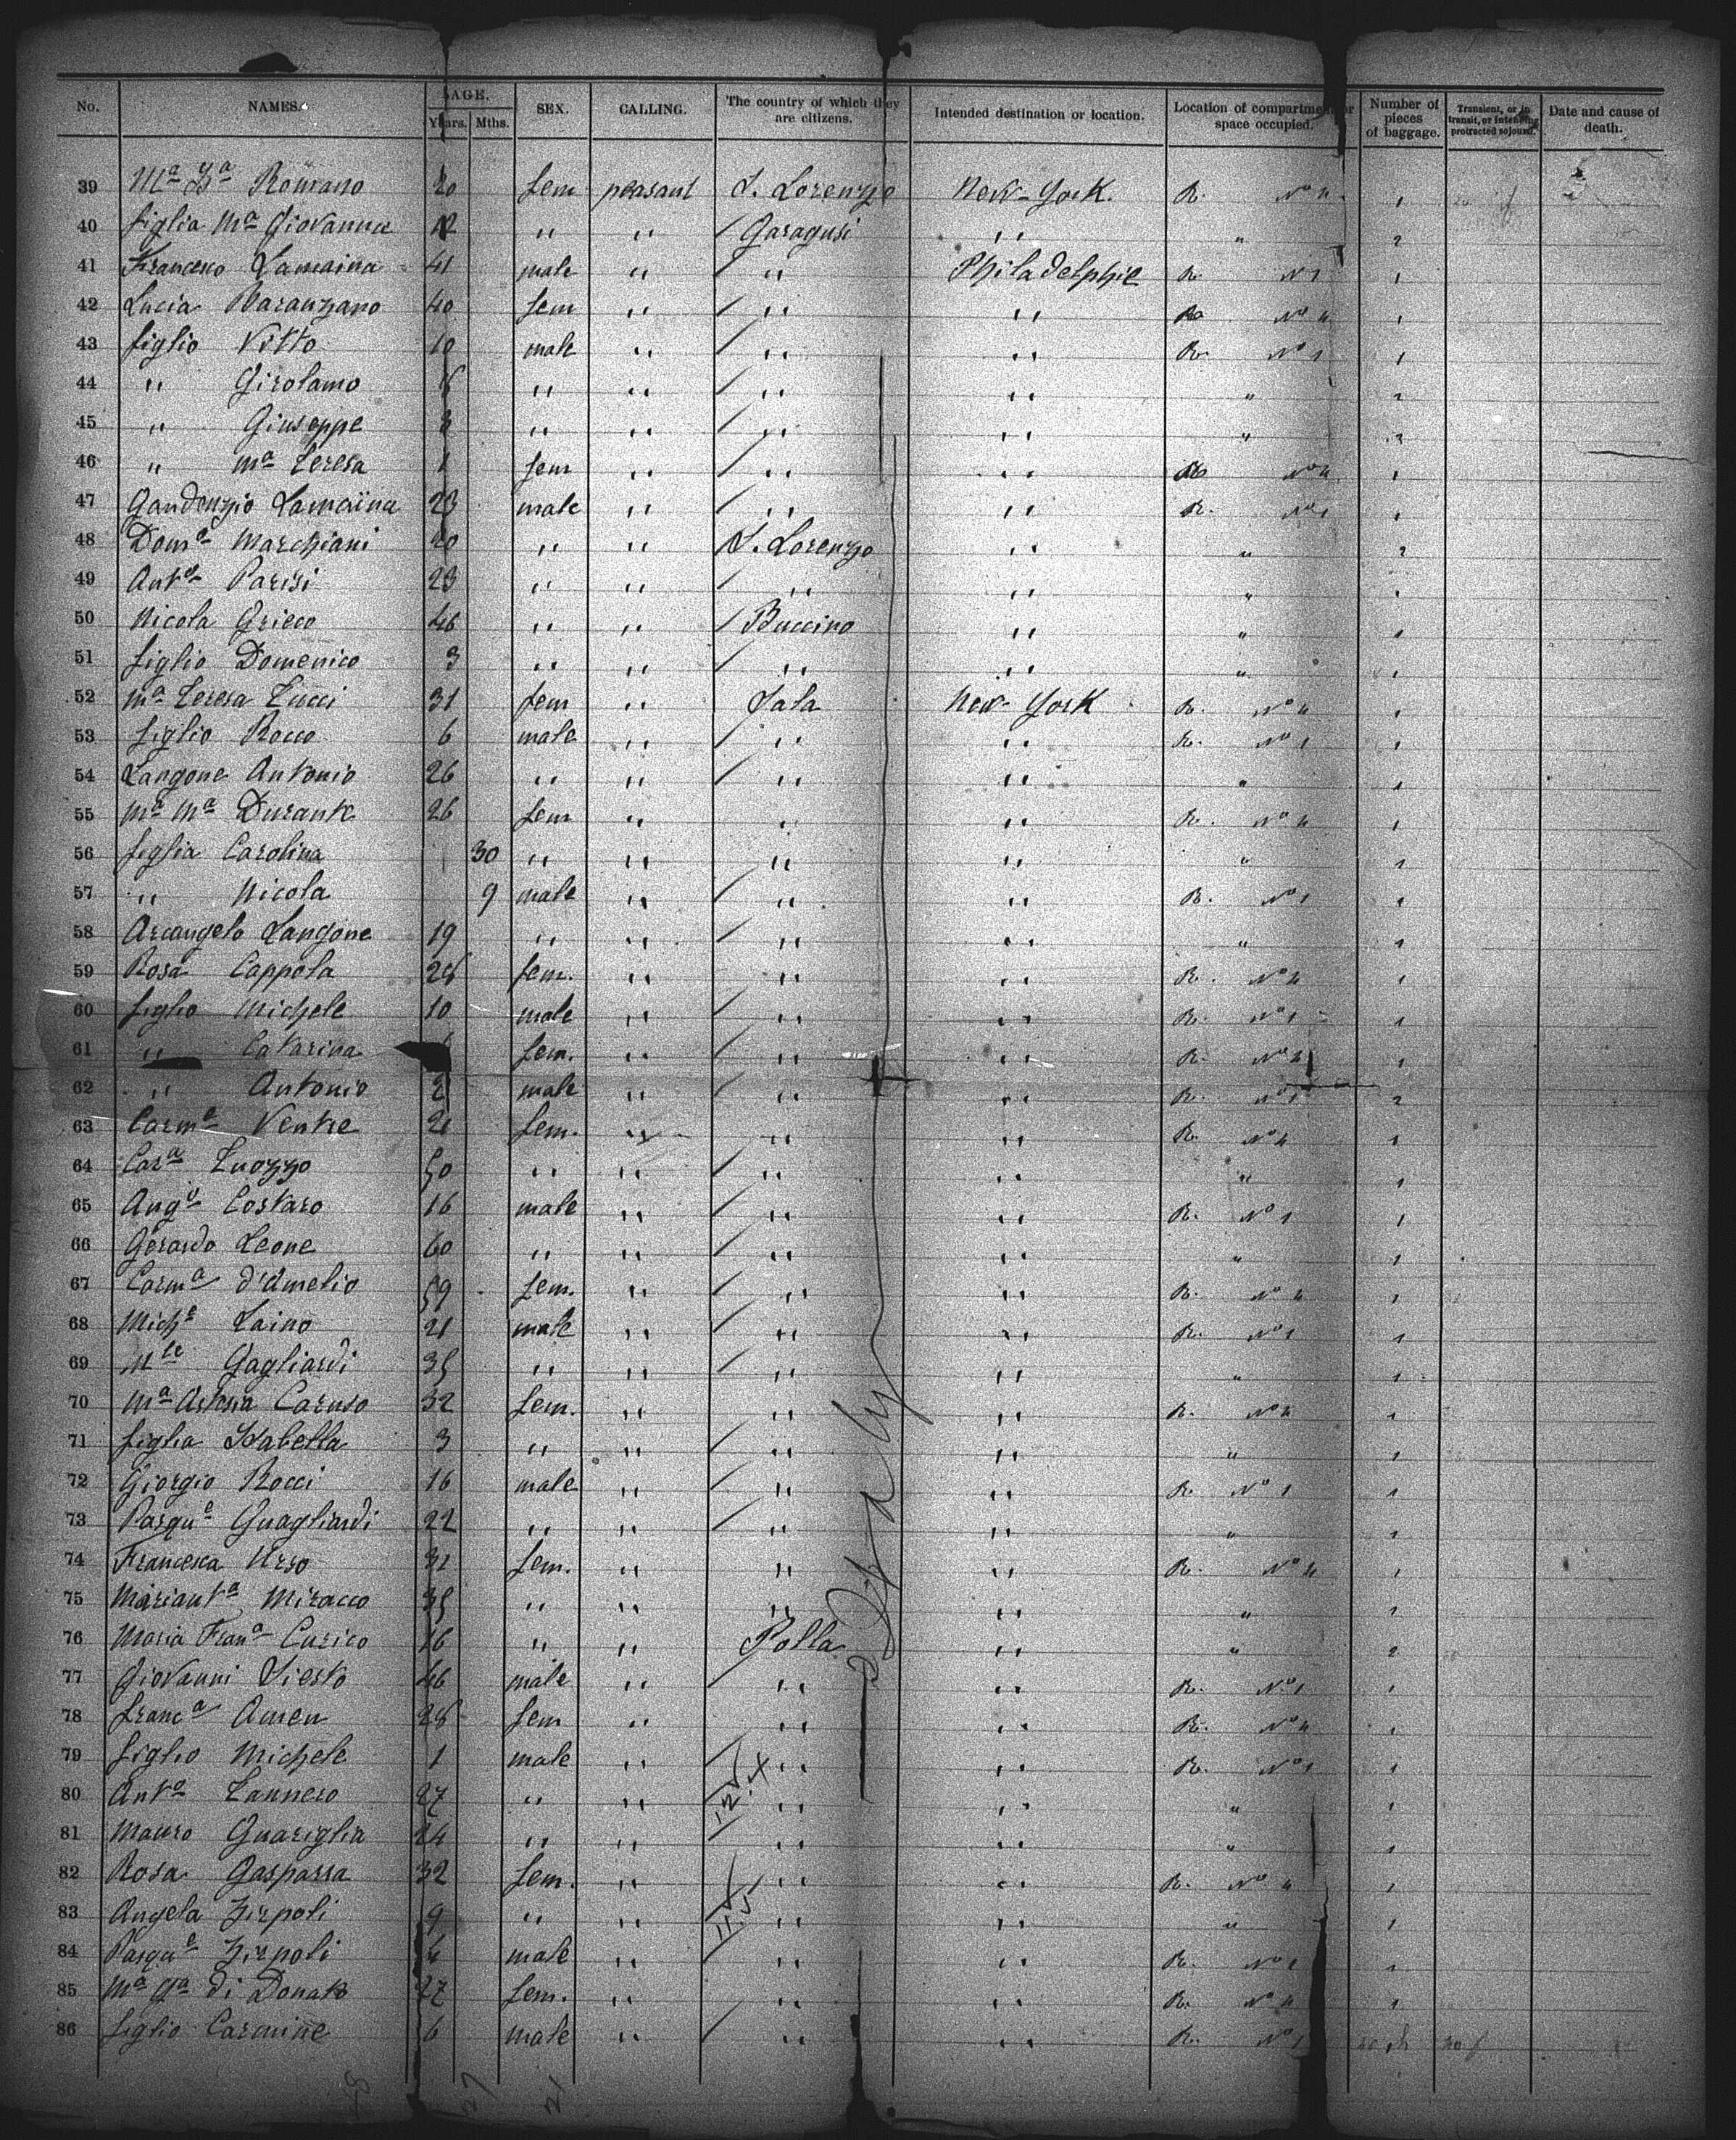 No. NAMES. AGE. SEX. CALLING. The country of which they are citizens. Intended destination or location. Location of compartment or space occupied. Number of pieces of baggage. Transient, or in transit, or intending protracted sojourn. Date and cause of death.
Years. Mths.
39 Mª Romano 20 fem peasant S. Lorenzo New-York. R. Nº 4 1
40 figlia Mª Giovanna 12 " " Garagusi " " 2
41 Francesco Lamaina 41 male " " Philadelphie R. Nº 1 1
42 Lucia 40 fem " " " R. Nº 4 1
43 figlio Vitto 10 male " " " R. Nº 1 1
44 " Girolamo " " " " " 2
45 " Giuseppe " " " " "
46 " Mª Teresa 1 fem " " " R. Nº 4 1
47 Gaudenzio Lamaina 23 male " " " R. Nº 1 1
48 Domº Marchiani 20 " " S. Lorenzo " " 2
49 Antº Parisi 23 " " " " " 1
50 Nicola Grieco 46 " " Buccino " " 1
51 figlio Domenico 3 " " " " " 1
52 Mª Teresa Tucci 31 fem " Sala New-York R. Nº 4 1
53 figlio Rocco 6 male " " " R. Nº 1 1
54 Langone Antonio 26 " " " " " 1
55 Mª Mª Durante 26 fem " " " R. Nº 4 1
56 figlia Carolina 30 " " " " " 1
57 " Nicola 9 male " " " R. Nº 1 1
58 Arcangelo Langone 19 " " " " " 1
59 Rosa Cappola 28 fem. " " " R. Nº 4 1
60 figlio Michele 10 male " " " R. Nº 1 1
61 " Catarina fem. " " " R. Nº 4 1
62 " Antonio 2 male " " " R. Nº 1 2
63 Carmª Ventre 21 fem. " " " R. Nº 4 1
64 Carª Luozzo 50 " " " " " 1
65 Angº Costaro 16 male " " " R. Nº 1 1
66 Gerardo Leone 60 " " " " " 1
67 Carmª d'Amelio 59 fem. " " " R. Nº 4 1
68 Michᵉ Laino 21 male " " " R. Nº 1 1
69 Mˡᵉ Gagliardi 35 " " " " " 1
70 Mª Caruso 32 fem. " " " R. Nº 4 1
71 figlia Isabella 3 " " " " " 1
72 Giorgio Rocci 16 male " " " R. Nº 1 1
73 Pasquᵉ Guagliardi 22 " " " " " 1
74 Francesca Urso 32 fem. " " " R. Nº 4 1
75 Mariantª Miracco 35 " " " " " 2
76 Maria Franª Curico 16 " " Polla " " 2
77 Giovanni Siesto 46 male " " " R. Nº 1 1
78 Francª Amen 28 fem " " " R. Nº 4 1
79 figlio Michele 1 male " " " R. Nº 1 1
80 Antº Lannero 27 " " " " " 1
81 Mauro Guariglia 24 " " " " " 1
82 Rosa Gasparra 32 fem. " " " R. Nº 4 1
83 Angela Zirpoli 9 " " " " " 1
84 Pasquᵉ Zirpoli male " " " R. Nº 1 1
85 Mª Gª di Donato 27 fem. " " " R. Nº 4 1
86 figlio Carmine 6 male " " " R. Nº 1
Italy
27 21